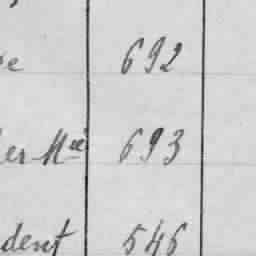 e 692
er Md 693
dent 546